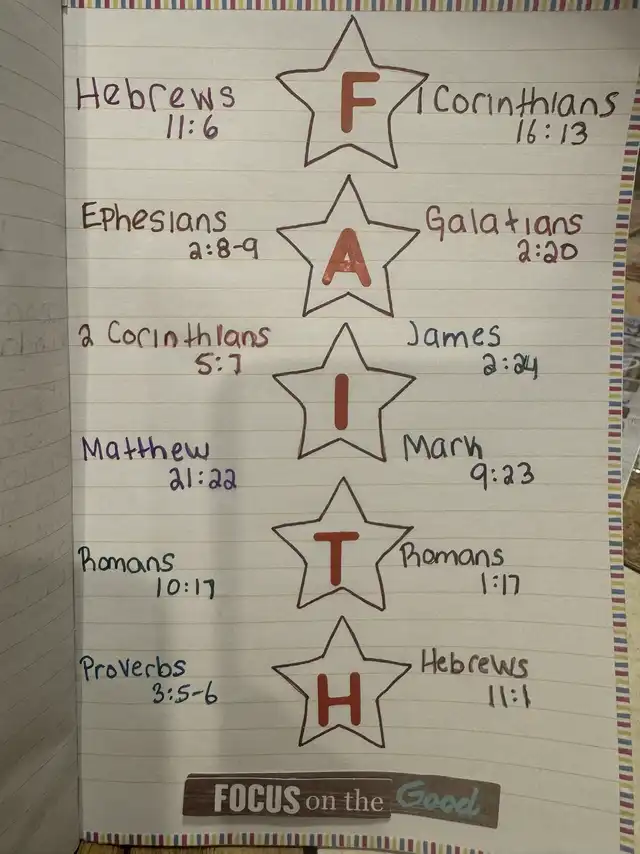 Hebrews
11:6
F
1 Corinthians
16:13
Ephesians
2:8-9
A
Galatians
2:20
2 Corinthians
5:7
I
James
2:24
Matthew
21:22
Mark
9:23
Romans
10:17
T
Romans
1:17
Proverbs
3:5-6
H
Hebrews
11:1
FOCUS on the Good